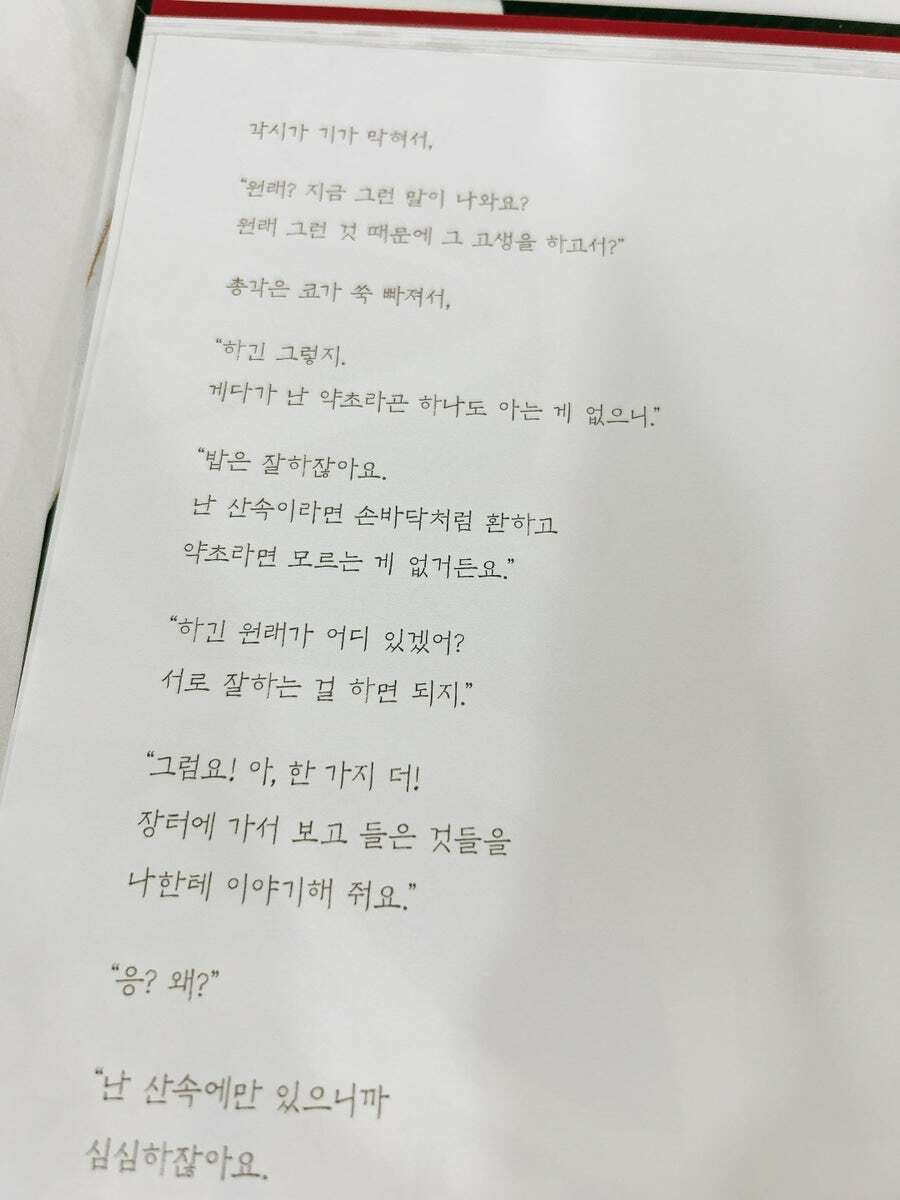 각시가 기가 막혀서,
“원래? 지금 그런 말이 나와요?
원래 그런 것 때문에 그 고생을 하고서?”
총각은 코가 쑥 빠져서,
“하긴 그렇지.
게다가 난 약초라곤 하나도 아는 게 없으니.”
“밥은 잘하잖아요.
난 산속이라면 손바닥처럼 환하고
약초라면 모르는 게 없거든요.”
“하긴 원래가 어디 있겠어?
서로 잘하는 걸 하면 되지.”
“그럼요! 아, 한 가지 더!
장터에 가서 보고 들은 것들을
나한테 이야기해 줘요.”
“응? 왜?”
“난 산속에만 있으니까
심심하잖아요.